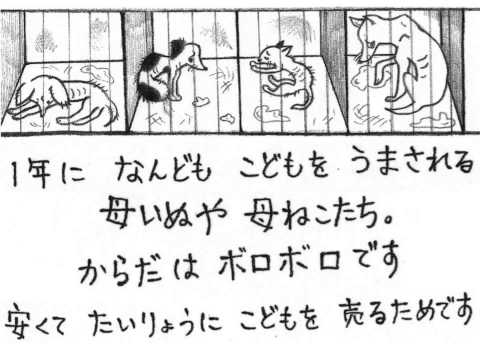 1年に なんども こどもを うまされる
母いぬや 母ねこたち。
からだは ボロボロです
安くて たいりょうに こどもを 売るためです